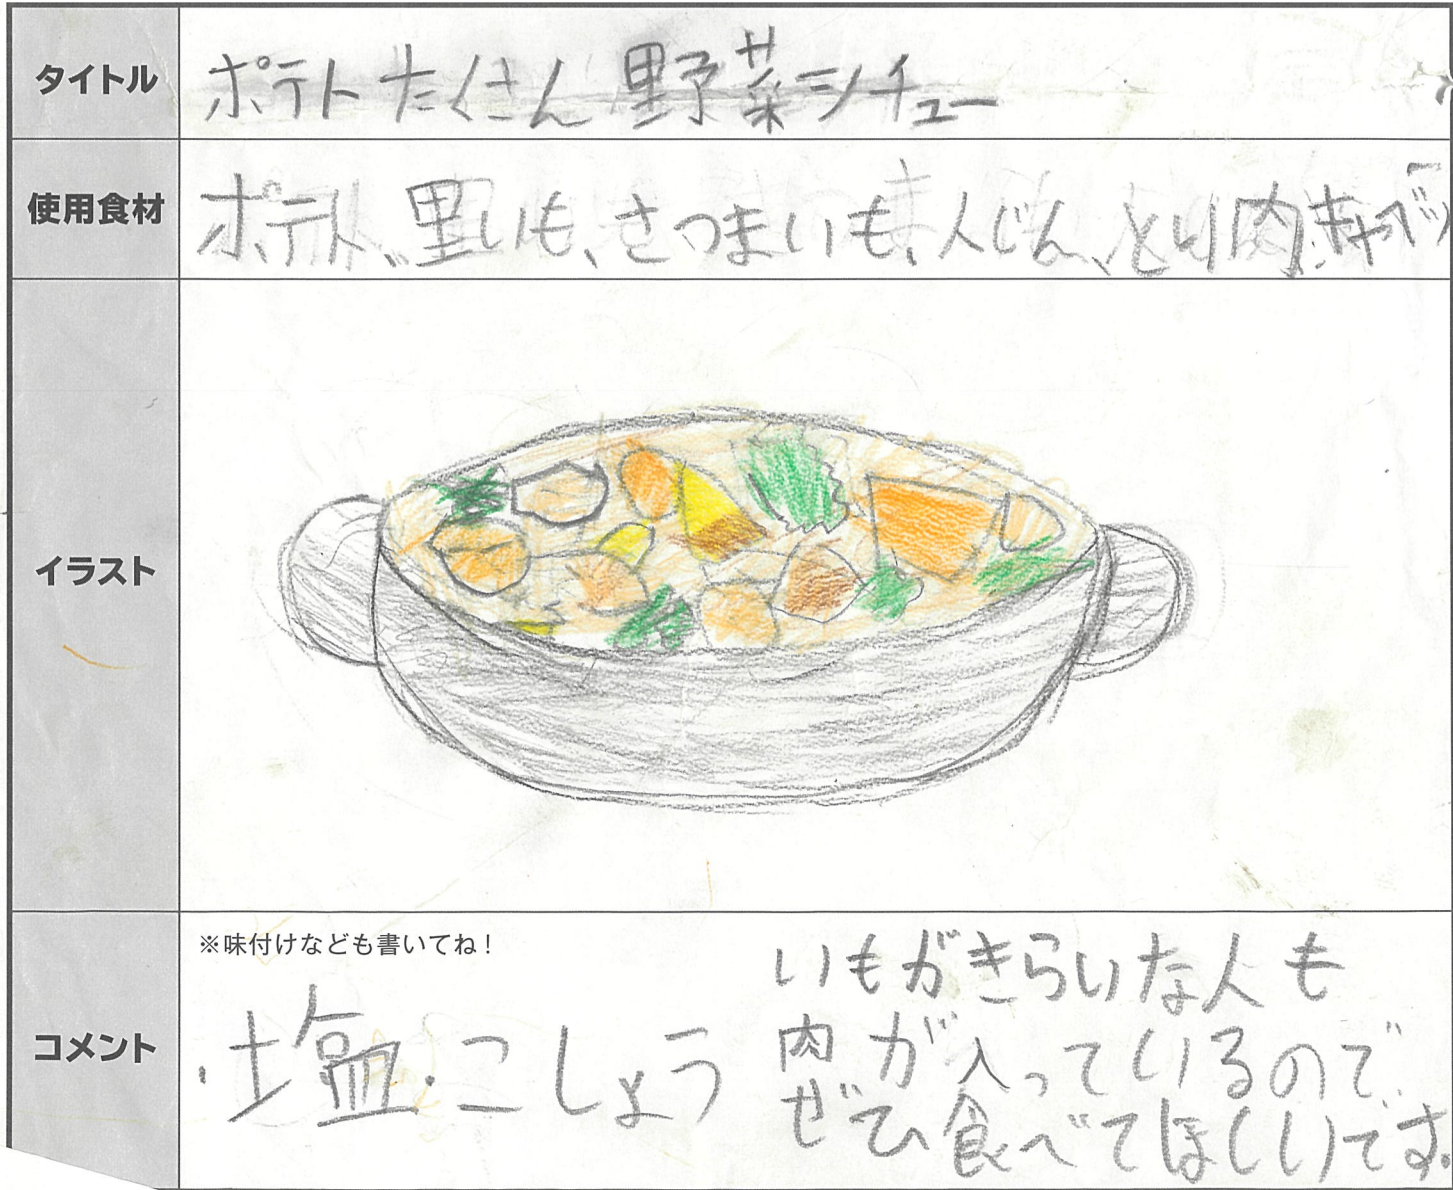 タイトル
ポテトたくさん野菜シチュー
使用食材
ポテト、里いも、さつまいも、人じん、とり肉、キャベツ
イラスト
コメント
※味付けなども書いてね！
・塩・こしょう
いもがきらいな人も
肉が入っているので
ぜひ食べてほしいです。